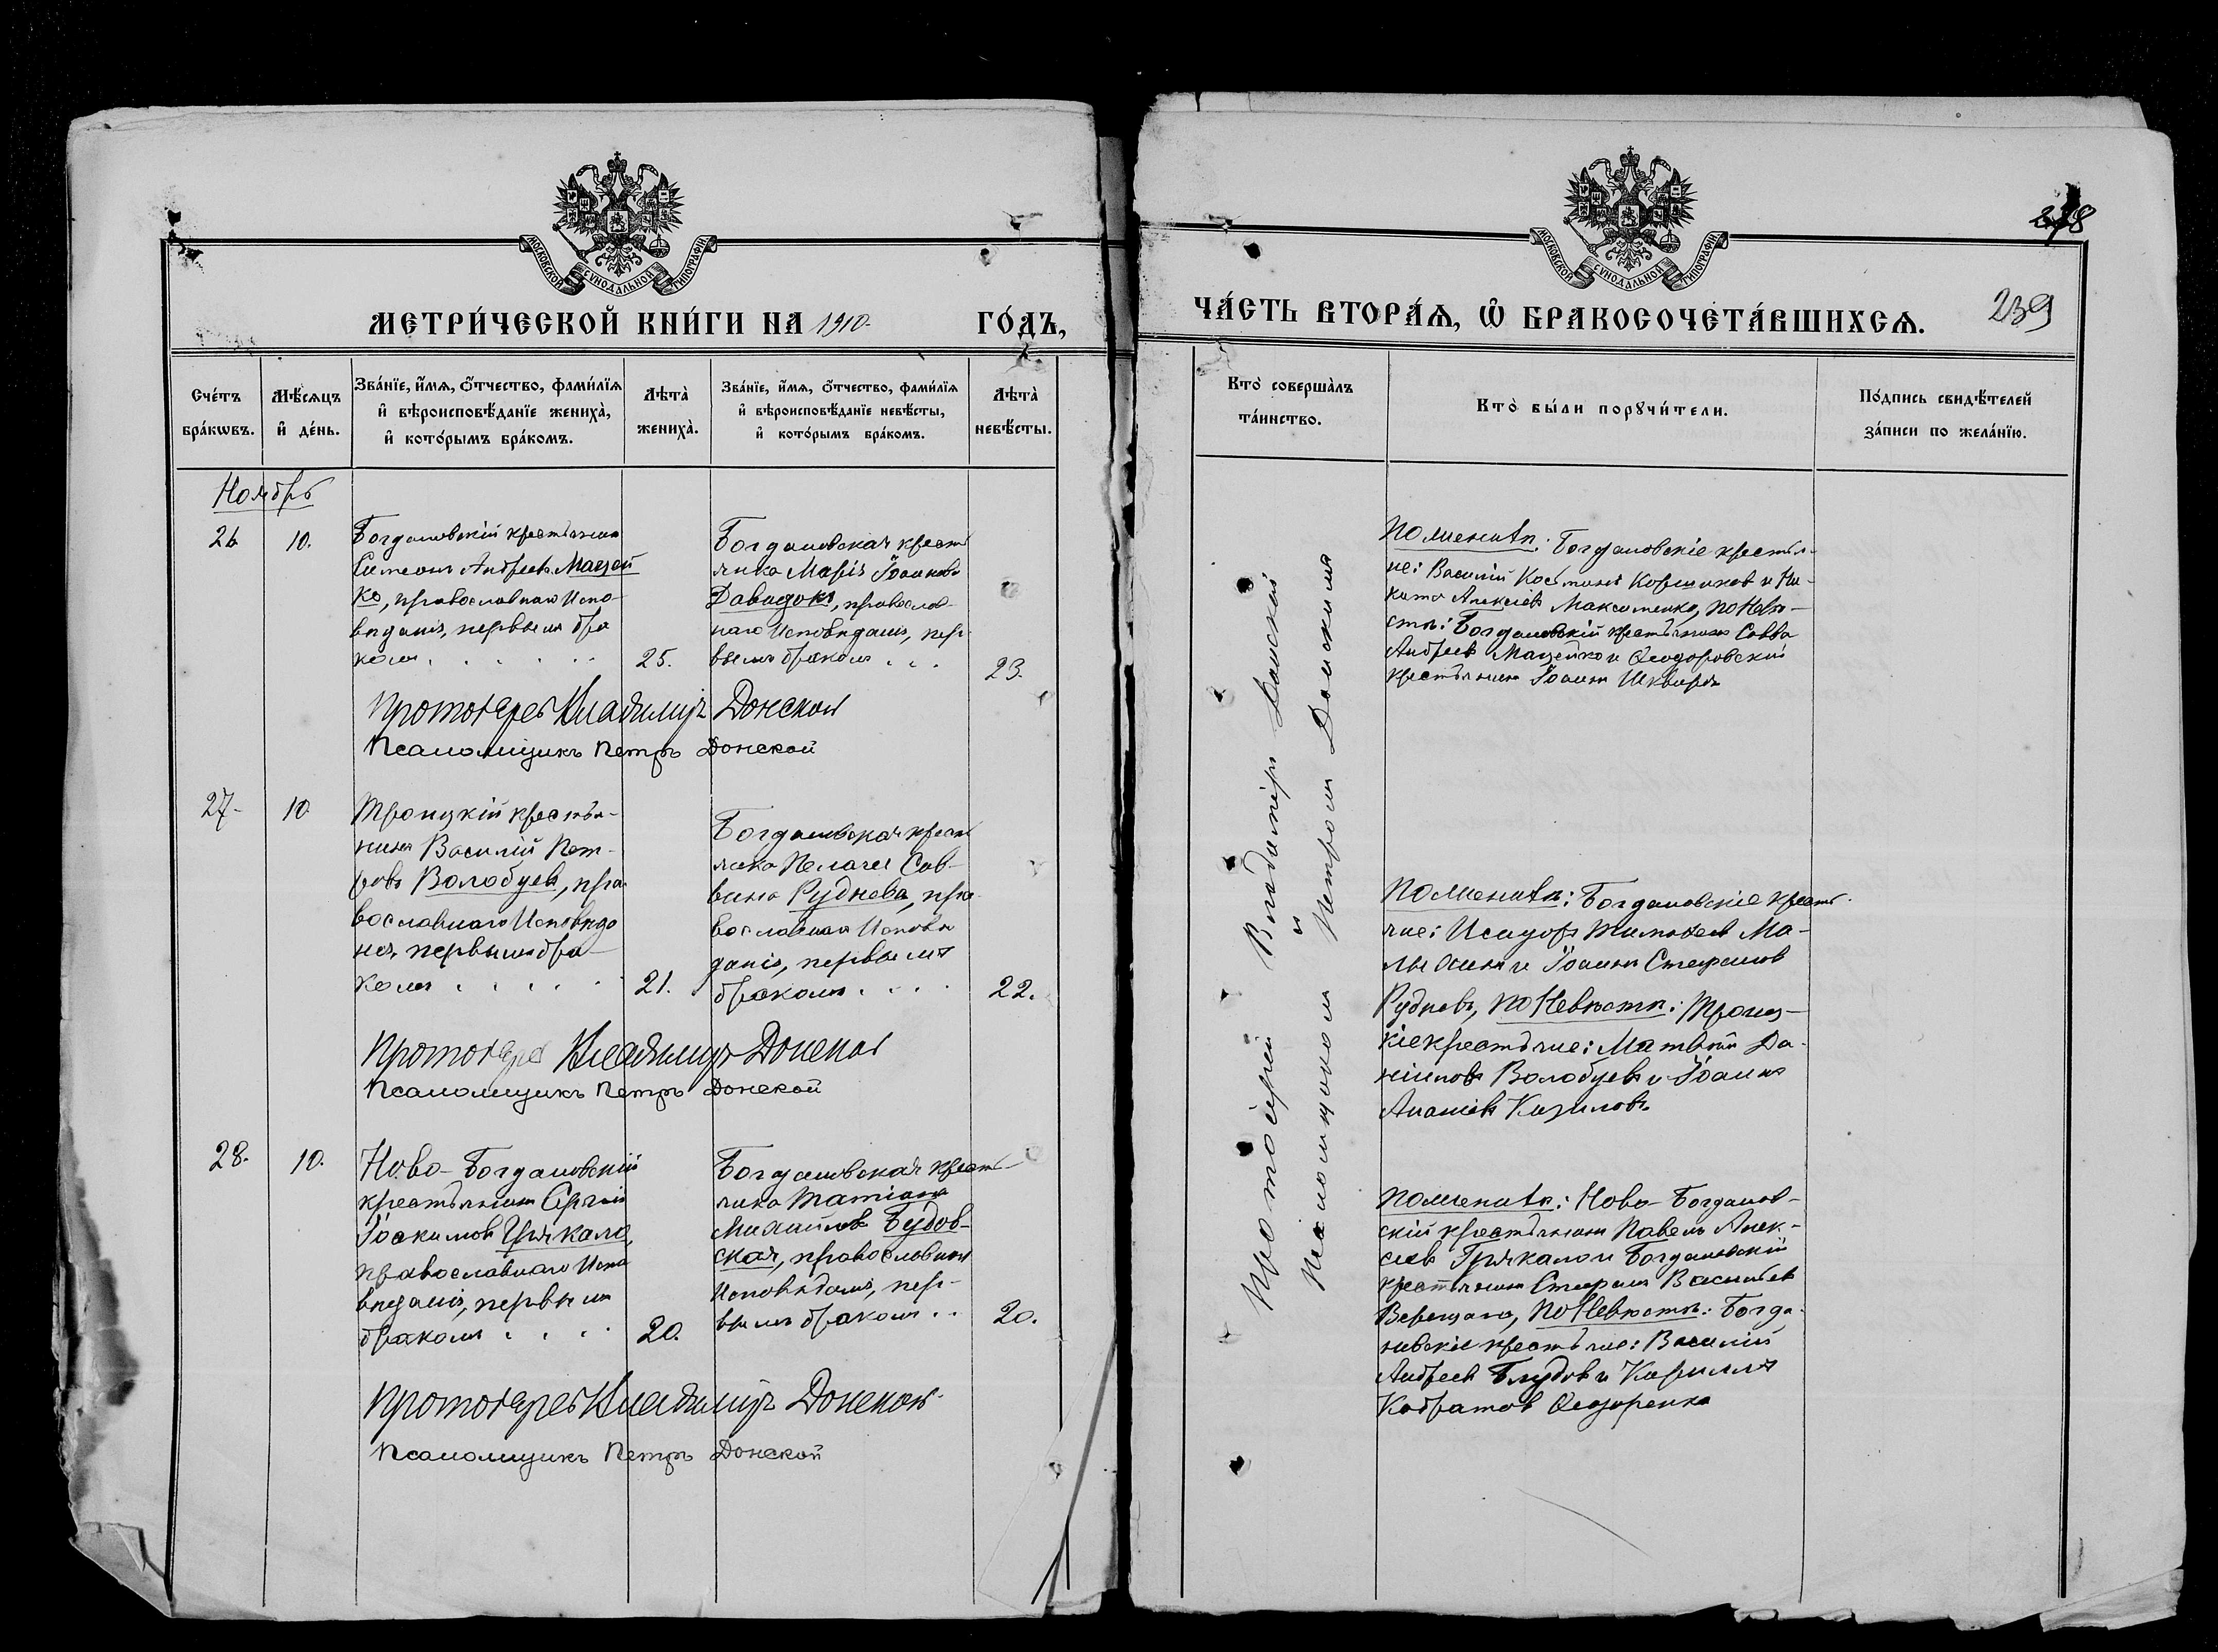 МОСКОВСКОЙ СУНОДАЛЬНОЙ ТИПОГРАФІИ
МЕТРИ́ЧЕСКОЙ КНИ́ГИ НА 1910. ГО́ДЪ,
Сче́тъ бра́кѡвъ.
Мѣ́сяцъ и҆ де́нь.
Зва́нїе, и҆́мѧ, ѻ҆́тчество, фами́лїѧ
и҆ вѣроисповѣ́данїе жениха̀,
и҆ кото́рымъ бра́комъ.
Лѣта̀ жениха̀.
Зва́нїе, и҆́мѧ, ѻ҆́тчество, фами́лїѧ
и҆ вѣроисповѣ́данїе невѣ́сты,
и҆ кото́рымъ бра́комъ.
Лѣта̀ невѣ́сты.
Ноябрь
26
10.
Богдановскій крестьянинъ
Симеонъ Андреевъ Мацей
ко, православнаго Испо-
вѣданія, первымъ бра
комъ
25.
Богдановская кресть
янка Марія Іоаннова
Давидокъ, православ-
наго Исповѣданія, пер-
вымъ бракомъ
23.
Протоіерей Владиміръ Донской
Псаломщикъ Петръ Донской
27-
10
Троицкій крестья-
нинъ Василій Пет-
ровъ Волобуевъ, пра-
вославнаго Исповѣда
нія, первымъ бра-
комъ
21.
Богдановская кресть
янка Пелагея Сав-
вина Руднева, пра-
вославнаго Исповѣ
данія, первымъ
бракомъ
22.
Протоіерей Владиміръ Донской
Псаломщикъ Петръ Донской
28.
10.
Ново-Богдановскій
крестьянинъ Сергій
Іоакимовъ Грякало,
православнаго Испо
вѣданія, первымъ
бракомъ
20.
Богдановская кресть-
янка Татіана
Михаилова Будов-
ская, православнаго
Исповѣданія, пер-
вымъ бракомъ
20.
Протоіерей Владиміръ Донской
Псаломщикъ Петръ Донской
МОСКОВСКОЙ СУНОДАЛЬНОЙ ТИПОГРАФІИ
ЧА́СТЬ ВТОРА́Ѧ, Ѡ҆ БРАКОСОЧЕТА́ВШИХСѦ.
239
Кто̀ соверша́лъ
та́инство.
Кто̀ бы́ли порꙋчи́тели.
По́дпись свидѣ́телей
за́писи по жела́нїю.
Протоіерей Владиміръ Донской
и
Псаломщикомъ Петромъ Донскимъ
По женихѣ: Богдановскіе крестья-
не: Василій Костинъ Коршиков и Ни-
кита Алексѣев Максименко, по Невѣ-
стѣ: Богдановскій крестьянинъ Савва
Андреевъ Мацейко и Ѳеодоровскій
крестьянинъ Іоаннъ Шквиря
По женихѣ: Богдановскіе кресть-
яне: Исидоръ Тимоѳеев Ма-
и Іоаннъ Стефанов
Рудневъ, по Невѣстѣ: Троиц-
кіе крестьяне: Матвѣй Да-
ніиловъ Волобуевъ и Іоаннъ
Ананіевъ Кизиловъ
По женихѣ: Ново-Богданов-
скій крестьянинъ Павелъ Алек-
сеевъ Грякало и Богдановскій
крестьянинъ Стефанъ Васильевъ
Верещага, по Невѣстѣ: Богда-
новскіе крестьяне: Василій
Андреевъ Блудов и Кириллъ
Кодратов Ѳеодоренко